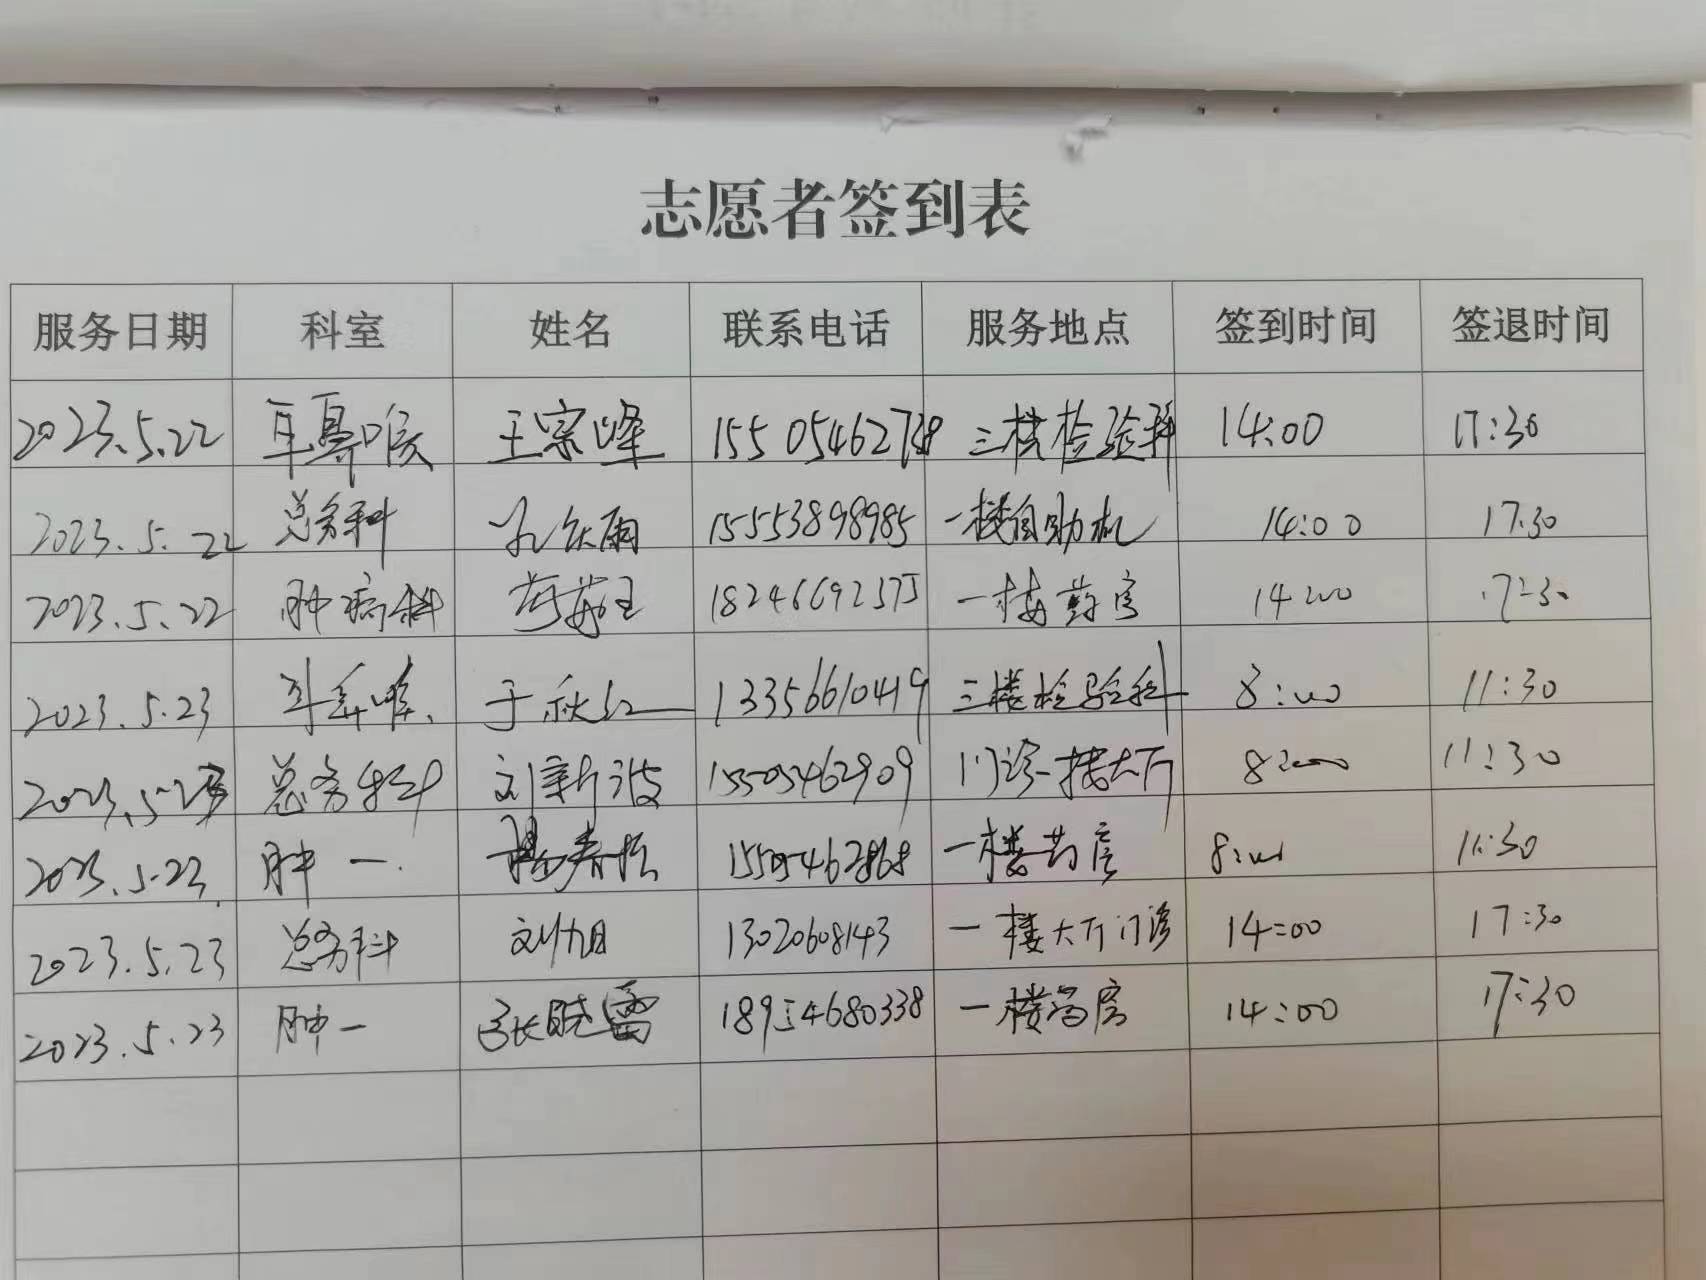 志愿者签到表
服务日期 科室 姓名 联系电话 服务地点 签到时间 签退时间
2023.5.22 耳鼻喉 王宗峰 三楼检验科 14:00 17:30
2023.5.22 总务科 15553898985 一楼自助机 14:00 17:30
2023.5.22 肿瘤科 一楼药房 14:00 17:30
2023.5.23 耳鼻喉 于秋红 13356610419 三楼检验科 8:00 11:30
2023.5.23 总务科 刘新波 15505462909 门诊一楼大厅 8:00 11:30
2023.5.23 肿一 杨春娟 15505462868 一楼药房 8:00 11:30
2023.5.23 总务科 刘旭 13020608143 一楼大厅门诊 14:00 17:30
2023.5.23 肿一 张晓雷 18954680338 一楼药房 14:00 17:30